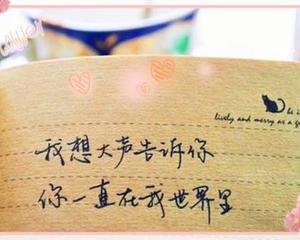 be i
lively and merry as a g
我想大声告诉你
你一直在我世界里